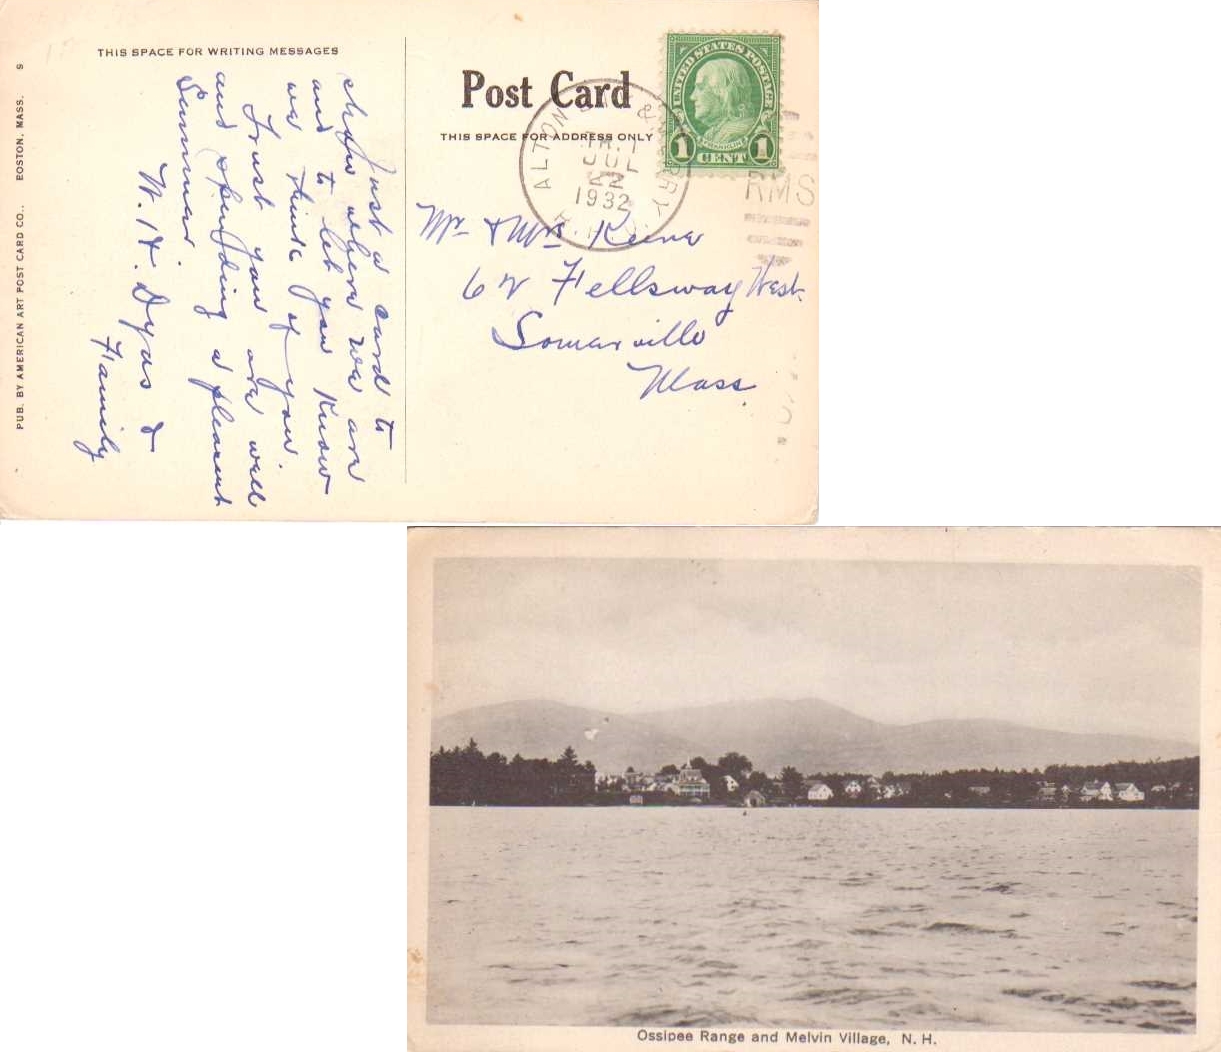 THIS SPACE FOR WRITING MESSAGES
Just a card to
show where we are
and to let you know
we think of you.
Trust you are well
and spending a pleasant
Summer.
W. H. Dyas &
Family
PUB. BY AMERICAN ART POST CARD CO., BOSTON, MASS. S
Post Card
THIS SPACE FOR ADDRESS ONLY
UNITED STATES POSTAGE
FRANKLIN
1 CENT 1
ALTON
&
TR. 1
JUL
22
1932
RMS
Mr & Mrs Keene
Fellsway West
Somerville
Mass.
Ossipee Range and Melvin Village, N. H.